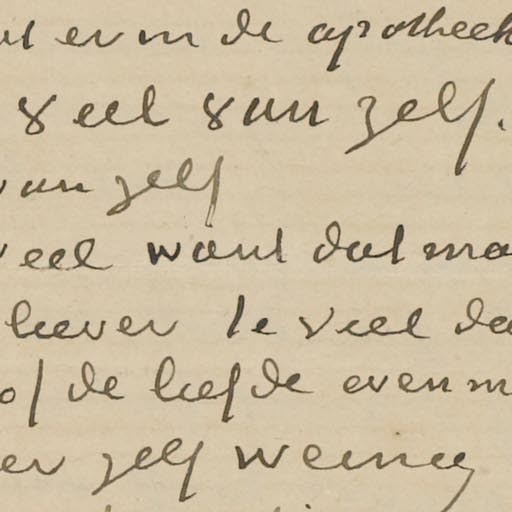 er in de apotheek
veel van zelf.
van zelf
veel want dat ma
liever te veel da
of de liefde even m
er zelf weinig